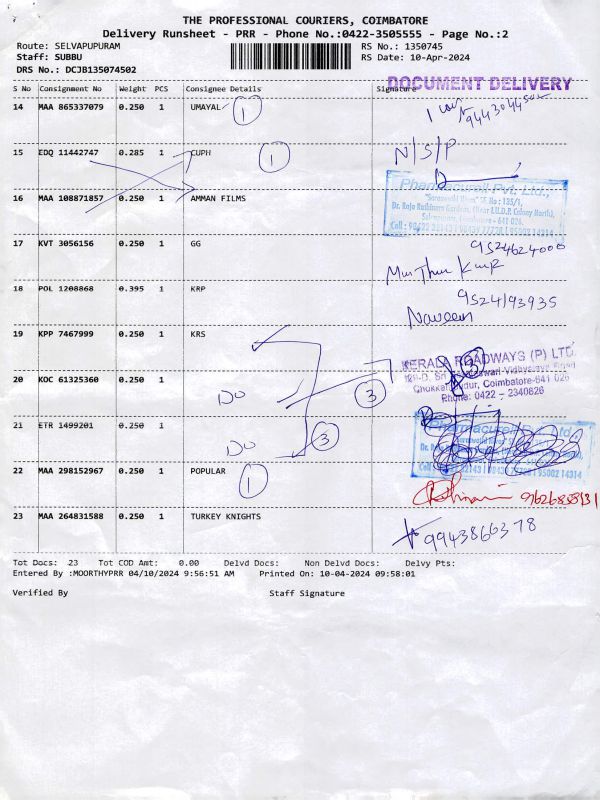 THE PROFESSIONAL COURIERS, COIMBATORE
Delivery Runsheet - PRR - Phone No.:0422-3505555 - Page No.:2
Route: SELVAPUPURAM RS No.: 1350745
Staff: SUBBU RS Date: 10-Apr-2024
DRS No.: DCJB135074502
DOCUMENT DELIVERY
S No Consignment No Weight PCS Consignee Details Signature
14 MAA 865337079 0.250 1 UMAYAL 1
15 EDQ 11442747 0.285 1 CUPH 1 N/S/P
16 MAA 108871857 0.250 1 AMMAN FILMS
Pharmacurell Pvt. Ltd.,
17 KVT 3056156 0.250 1 GG 9524624000
18 POL 1208868 0.395 1 KRP 9524193935
Naveen
19 KPP 7467999 0.250 1 KRS
KERALA ROADWAYS (P) LTD.
Coimbatore-641 026
Phone: 0422 - 2340826
20 KOC 61325360 0.250 1 Do 3
21 ETR 1499201 0.250 1 Do 3
22 MAA 298152967 0.250 1 POPULAR 1
23 MAA 264831588 0.250 1 TURKEY KNIGHTS 9943866378
Tot Docs: 23 Tot COD Amt: 0.00 Delvd Docs: Non Delvd Docs: Delvy Pts:
Entered By :MOORTHYPRR 04/10/2024 9:56:51 AM Printed On: 10-04-2024 09:58:01
Verified By Staff Signature